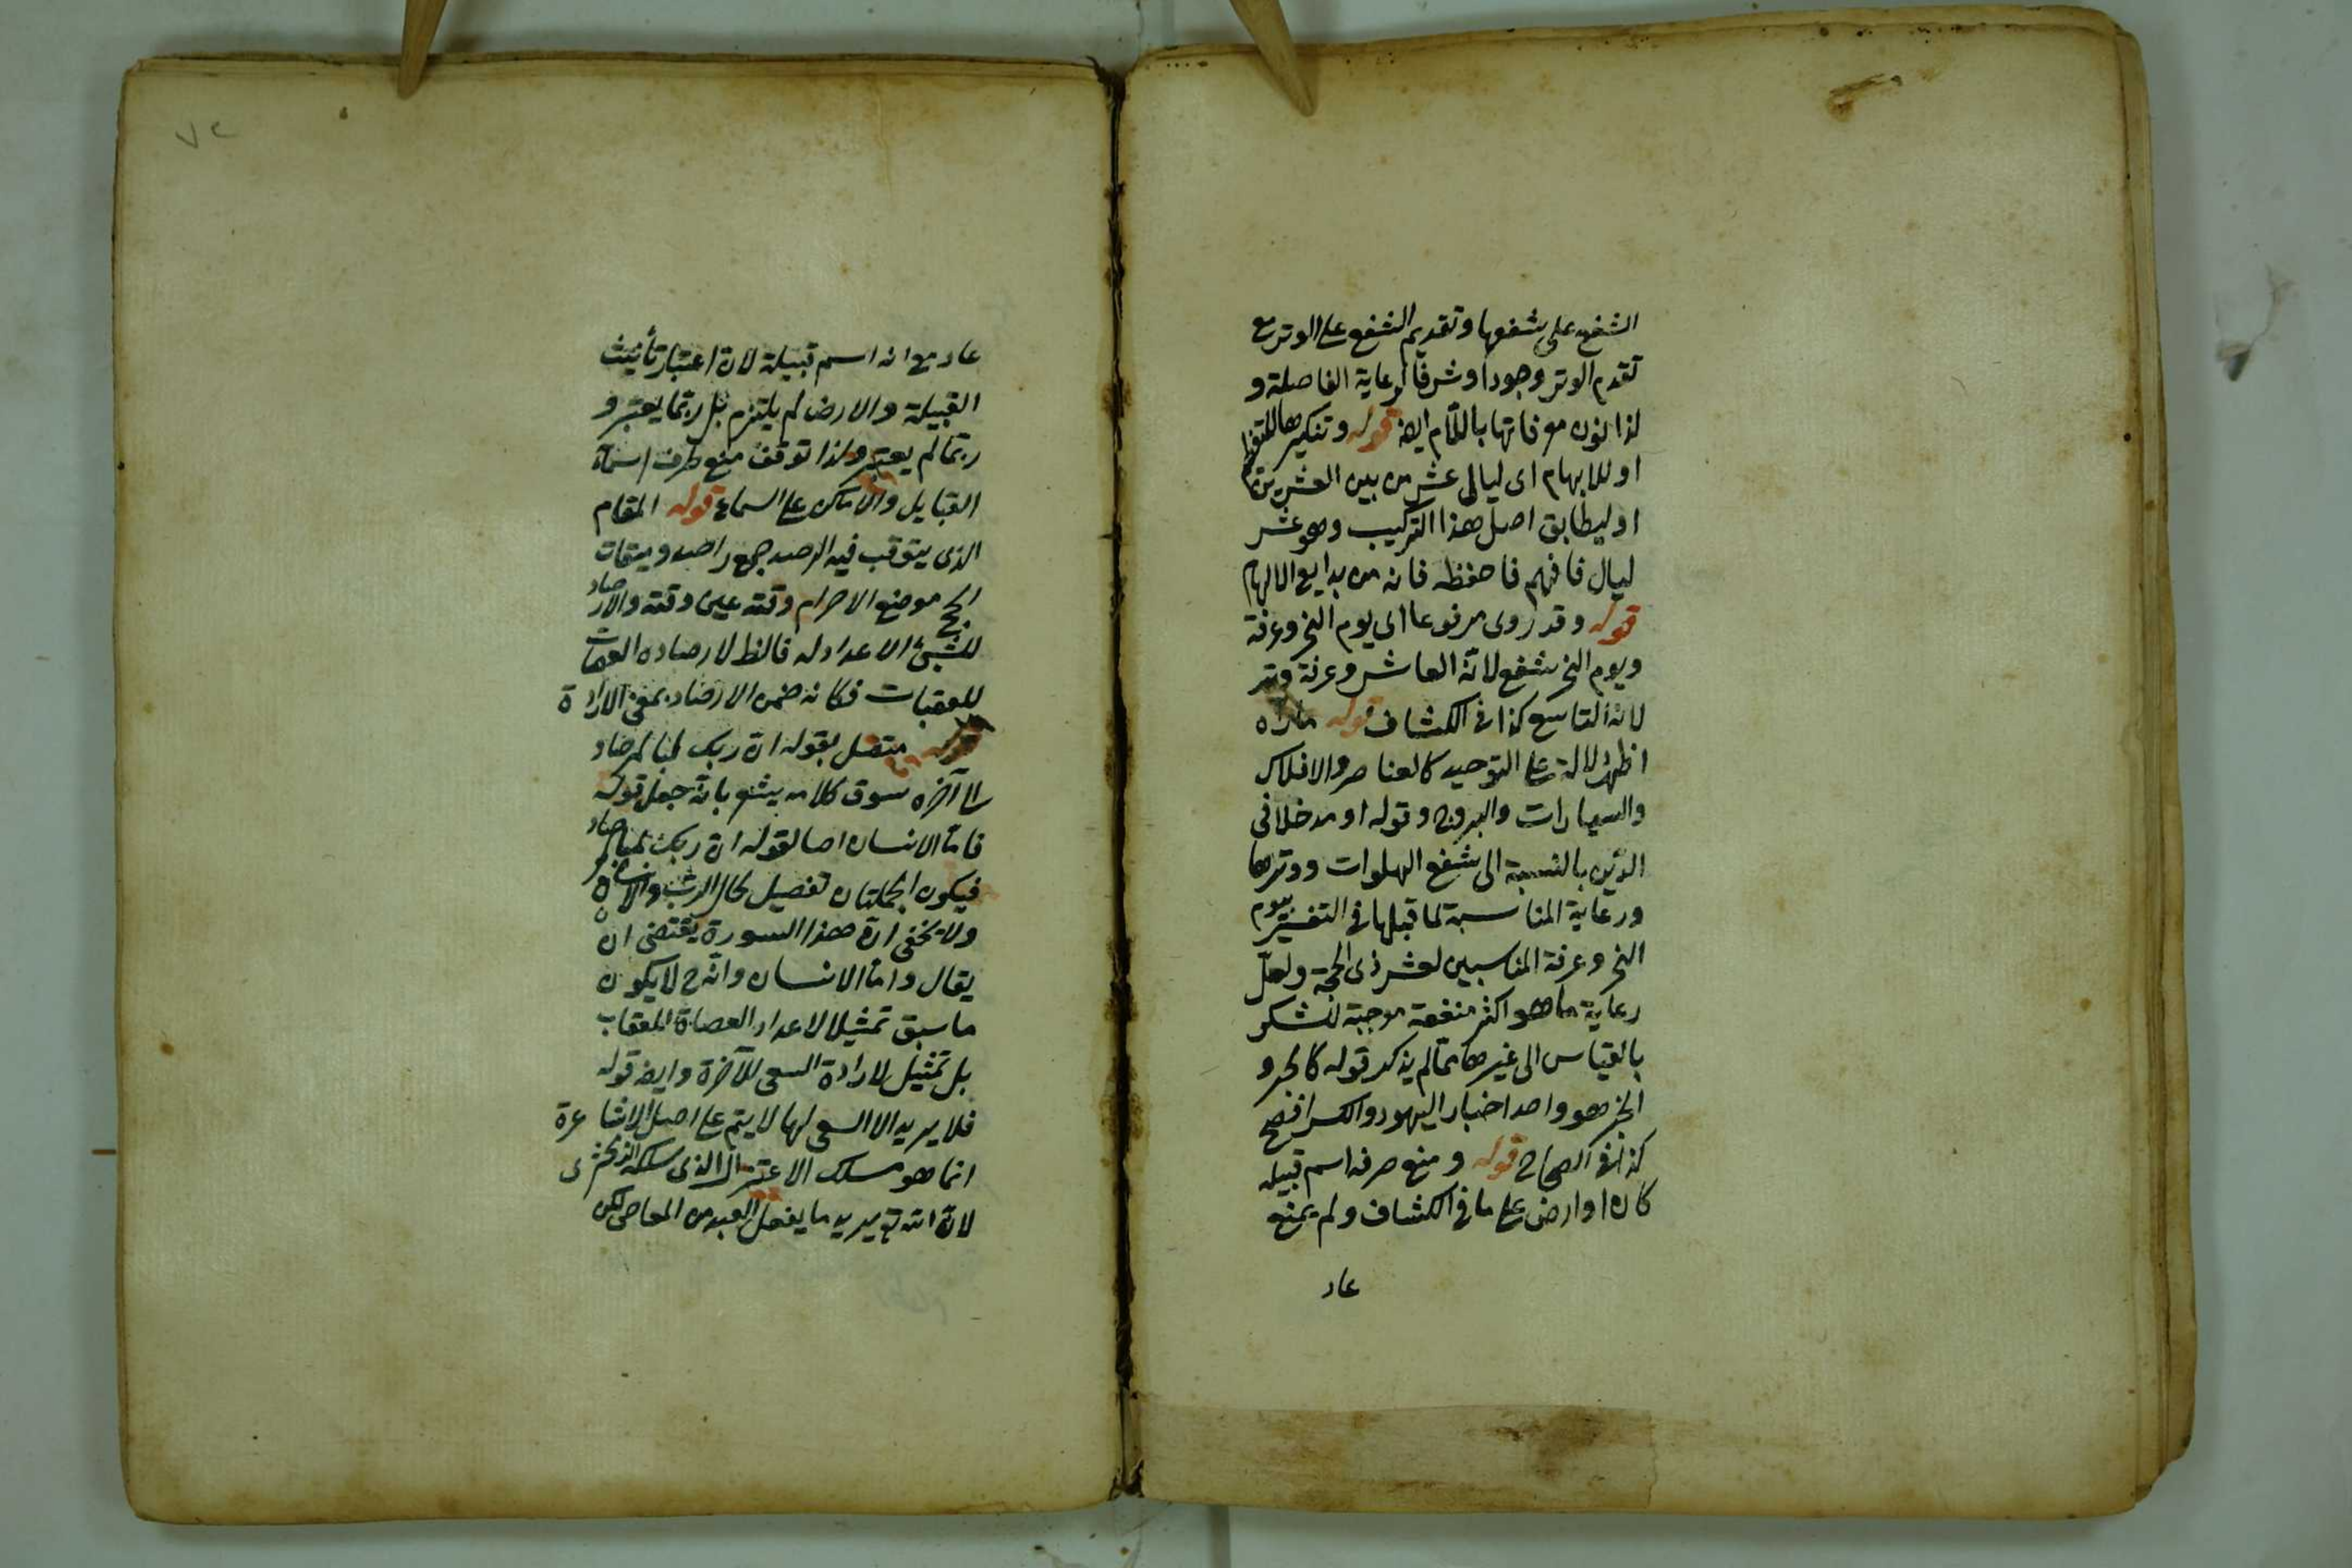 الشفع على شفعها وتقديم الشفع على الوتر مع
تقدم الوتر وجودا وشرفا لرعاية الفاصلة و
لذا لون موفاتها باللام ايضا قوله وتنكيرها للتعظيم
او للابهام اى ليالى عشر من بين العشر
او ليطابق اصل هذا التركيب وهو عشر
ليال فافهم فاحفظه فانه من بدايع الالهام
قوله وقد روى مرفوعا اى يوم النحر وعرفة
ويوم النحر شفع لانه العاشر وعرفة وتر
لانه التاسع كذا فى الكشاف قوله مارآه
اظهر دلالة على التوحيد كالعناصر والافلاك
والسيارات والبروج وقوله او مدخلا فى
الدين بالنسبة الى شفع الصلوات ووترها
ورعاية المناسبة لما قبلها فى التفسير بيوم
النحر وعرفة المناسبين لعشر ذى الحجة ولعل
رعاية ما هو اكثر منفعة موجبة للشكر
بالقياس الى غيرها مما لم يذكر قوله كالحبر و
الحبر هو واحد احبار اليهود والكسر افصح
كذا فى الصحاح قوله ومنع صرفه اسم قبيله
كان او ارض على ما فى الكشاف ولم يمنع
عاد
٧٢
عاد مع انه اسم قبيلة لان اعتبار تأنيث
القبيلة والارض لم يلتزم بل ربما يعتبر و
ربما لم يعتبر ولذا توقف منع صرف اسماء
القبايل والاماكن على السماع قوله المقام
الذى يترقب فيه الرصد جمع راصد وميقات
الحج موضع الاحرام وقته عين وقته والارصاد
للشيئ الاعداد له فالظ لارصاده العصاة
للعقبات فكانه ضمن الارصاد بمعنى الارادة
قوله متصل بقوله ان ربك لبالمرصاد
الى آخره سوق كلامه يشعر بانه جعل قوله
فاما الانسان اصا لقوله ان ربك لبالمرصاد
فيكون الجملتان تفصيل لحال الرب والانسان
ولا يخفى ان هذا السورة يقتضى ان
يقال واما الانسان وانه ح لا يكون
ما سبق تمثيلا لاعداد العصاة للعقاب
بل تمثيل لارادة السعى للآخرة وايضا قوله
فلا يريد الا السعى لها لا يتم على اصل الاشاعرة
انما هو مسلك الاعتزال الذى سلكه الزمخشرى
لان الله تع يريد ما يفعل العبد من المعاصى لكن